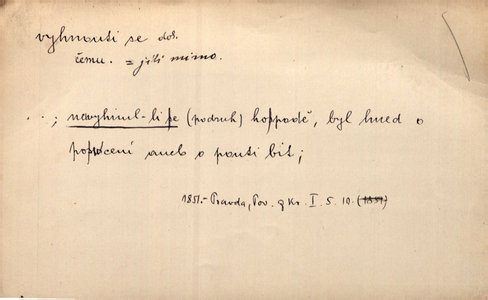 vyhnouti se dok.
čemu. = jíti mimo.
..; newyhinul-li se (podruh) hospodě, byl hned o
pokácení aneb o pouti bit;
1851.- Pravda, Pov. z Kr. I. 5. 10. (1851)